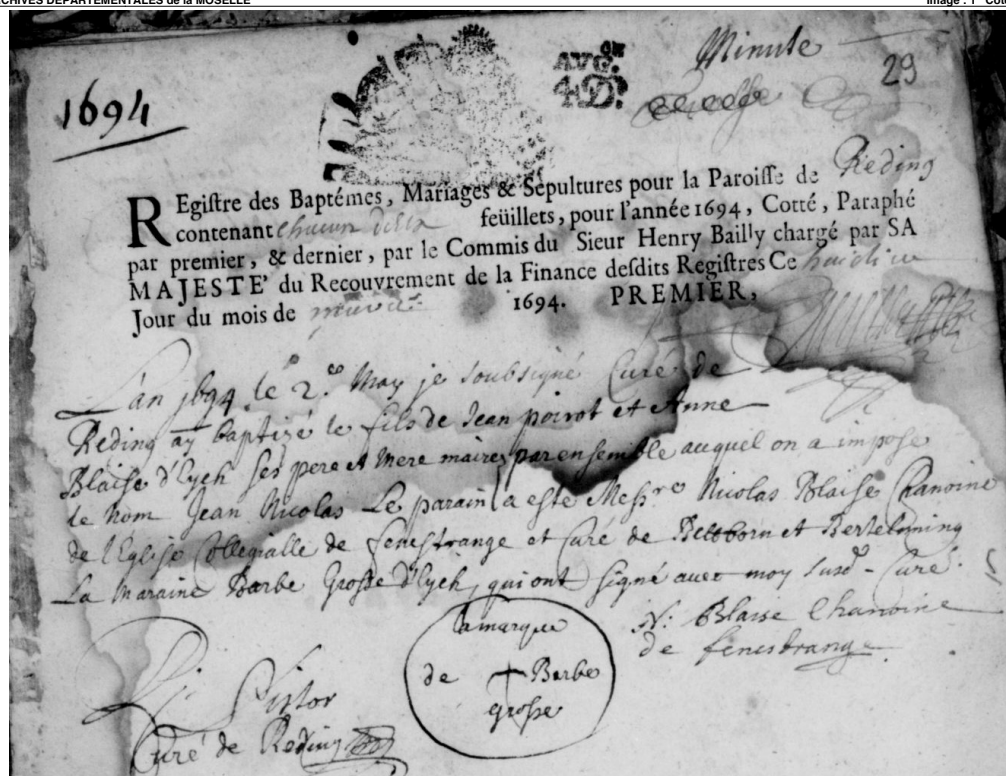 ARCHIVES DEPARTEMENTALES de la MOSELLE
Image : 1
Minute
29
AVG.ON
4D.
1694
REgistre des Baptémes, Mariages & Sepultures pour la Paroisse de Reding
contenant feüillets, pour l'année 1694, Cotté, Paraphé
par premier, & dernier, par le Commis du Sieur Henry Bailly chargé par SA
MAJESTE' du Recouvrement de la Finance desdits Registres Ce
Jour du mois de 1694. PREMIER,
L'an 1694 le 2.e May je soubsigné Curé de
Reding ay baptizé le fils de Jean poirot et Anne
Blaise d'Eych ses pere et mere mairez par ensemble auquel on a imposé
le nom Jean Nicolas Le parain a esté Messre Nicolas Blaise Chanoine
de l'Eglise Collegialle de fenestrange et Curé de Bettborn et Bertelming
La Maraine Barbe Grosse d'Eych, qui ont signé avec moy susd - Curé.
N: Blaise Chanoine
de fenestrange
lamarque
de + Barbe
grosse
Pistor
Curé de Reding